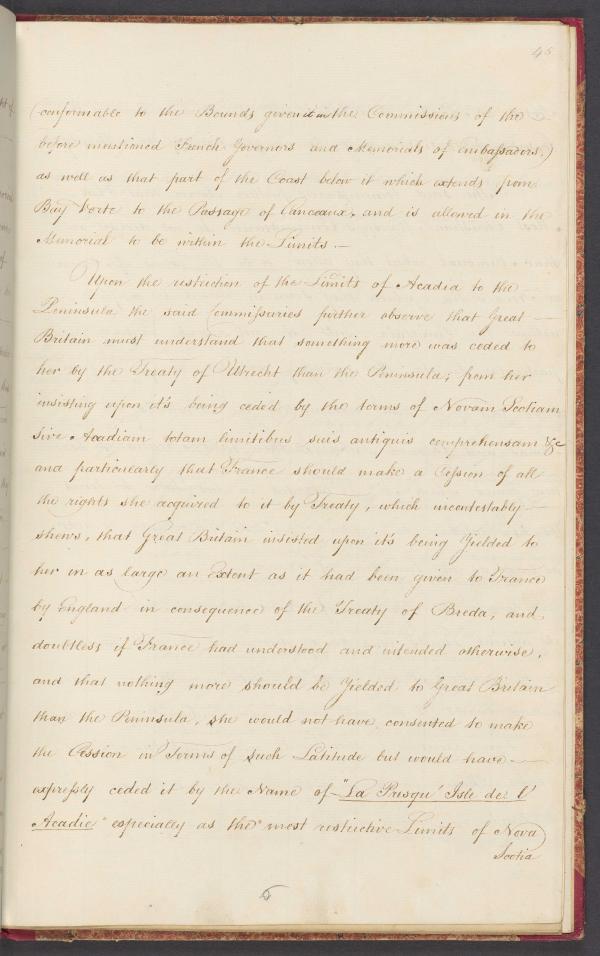 46
(conformable to the Bounds given it in the Commissions of the
before mentioned French Governors and Memorials of Embassadors.)
as well as that part of the Coast below it which extends from
Bay Verte to the Passage of Canceaux, and is allowed in the
Memorial to be within the Limits.—
Upon the restriction of the Limits of Acadia to the
Peninsula the said Commissaries further observe that Great —
Britain must understand that something more was ceded to
her by the Treaty of Utrecht than the Peninsula; from her
insisting upon it's being ceded by the terms of Novam Scotiam
sive Acadiam totam limitibus suis antiquis comprehensam &c
and particularly that France should make a Cession of all
the rights she acquired to it by Treaty, which incontestably —
shews, that Great Britain insisted upon it's being Yielded to
her in as large an Extent as it had been given to France
by England in consequence of the Treaty of Breda, and
doubtless if France had understood and intended otherwise,
and that nothing more should be Yielded to Great Britain
than the Peninsula, she would not have consented to make
the Cession in Terms of such Latitude but would have —
expressly ceded it by the Name of "La Presqu' Isle de l'
Acadie" especially as the most restrictive Limits of Nova
Scotia
6